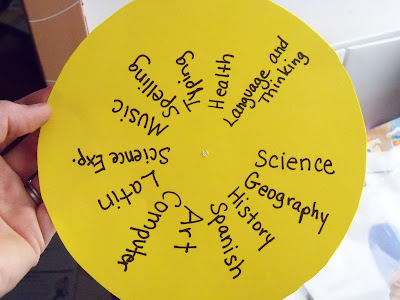 Language and
Thinking
Science
Geography
History
Spanish
Art
Computer
Latin
Science Exp.
Music
Spelling
Typing
Health